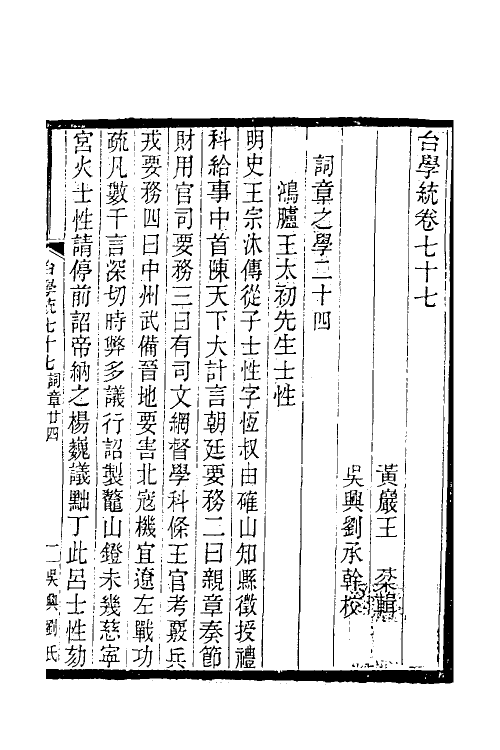 台學統卷七十七
黃巖王 棻輯
吳興劉承幹校
詞章之學二十四
鴻臚王太初先生士性
明史王宗沐傳從子士性字恆叔由確山知縣徵授禮
科給事中首陳天下大計言朝廷要務二曰親章奏節
財用官司要務三曰有司文網督學科條王官考覈兵
戎要務四曰中州武備晉地要害北寇機宜遼左戰功
疏凡數千言深切時弊多議行詔製鼇山鐙未幾慈寧
宮火士性請停前詔帝納之楊巍議黜丁此呂士性劾
台學統七十七 詞章廿四 一 吳興劉氏